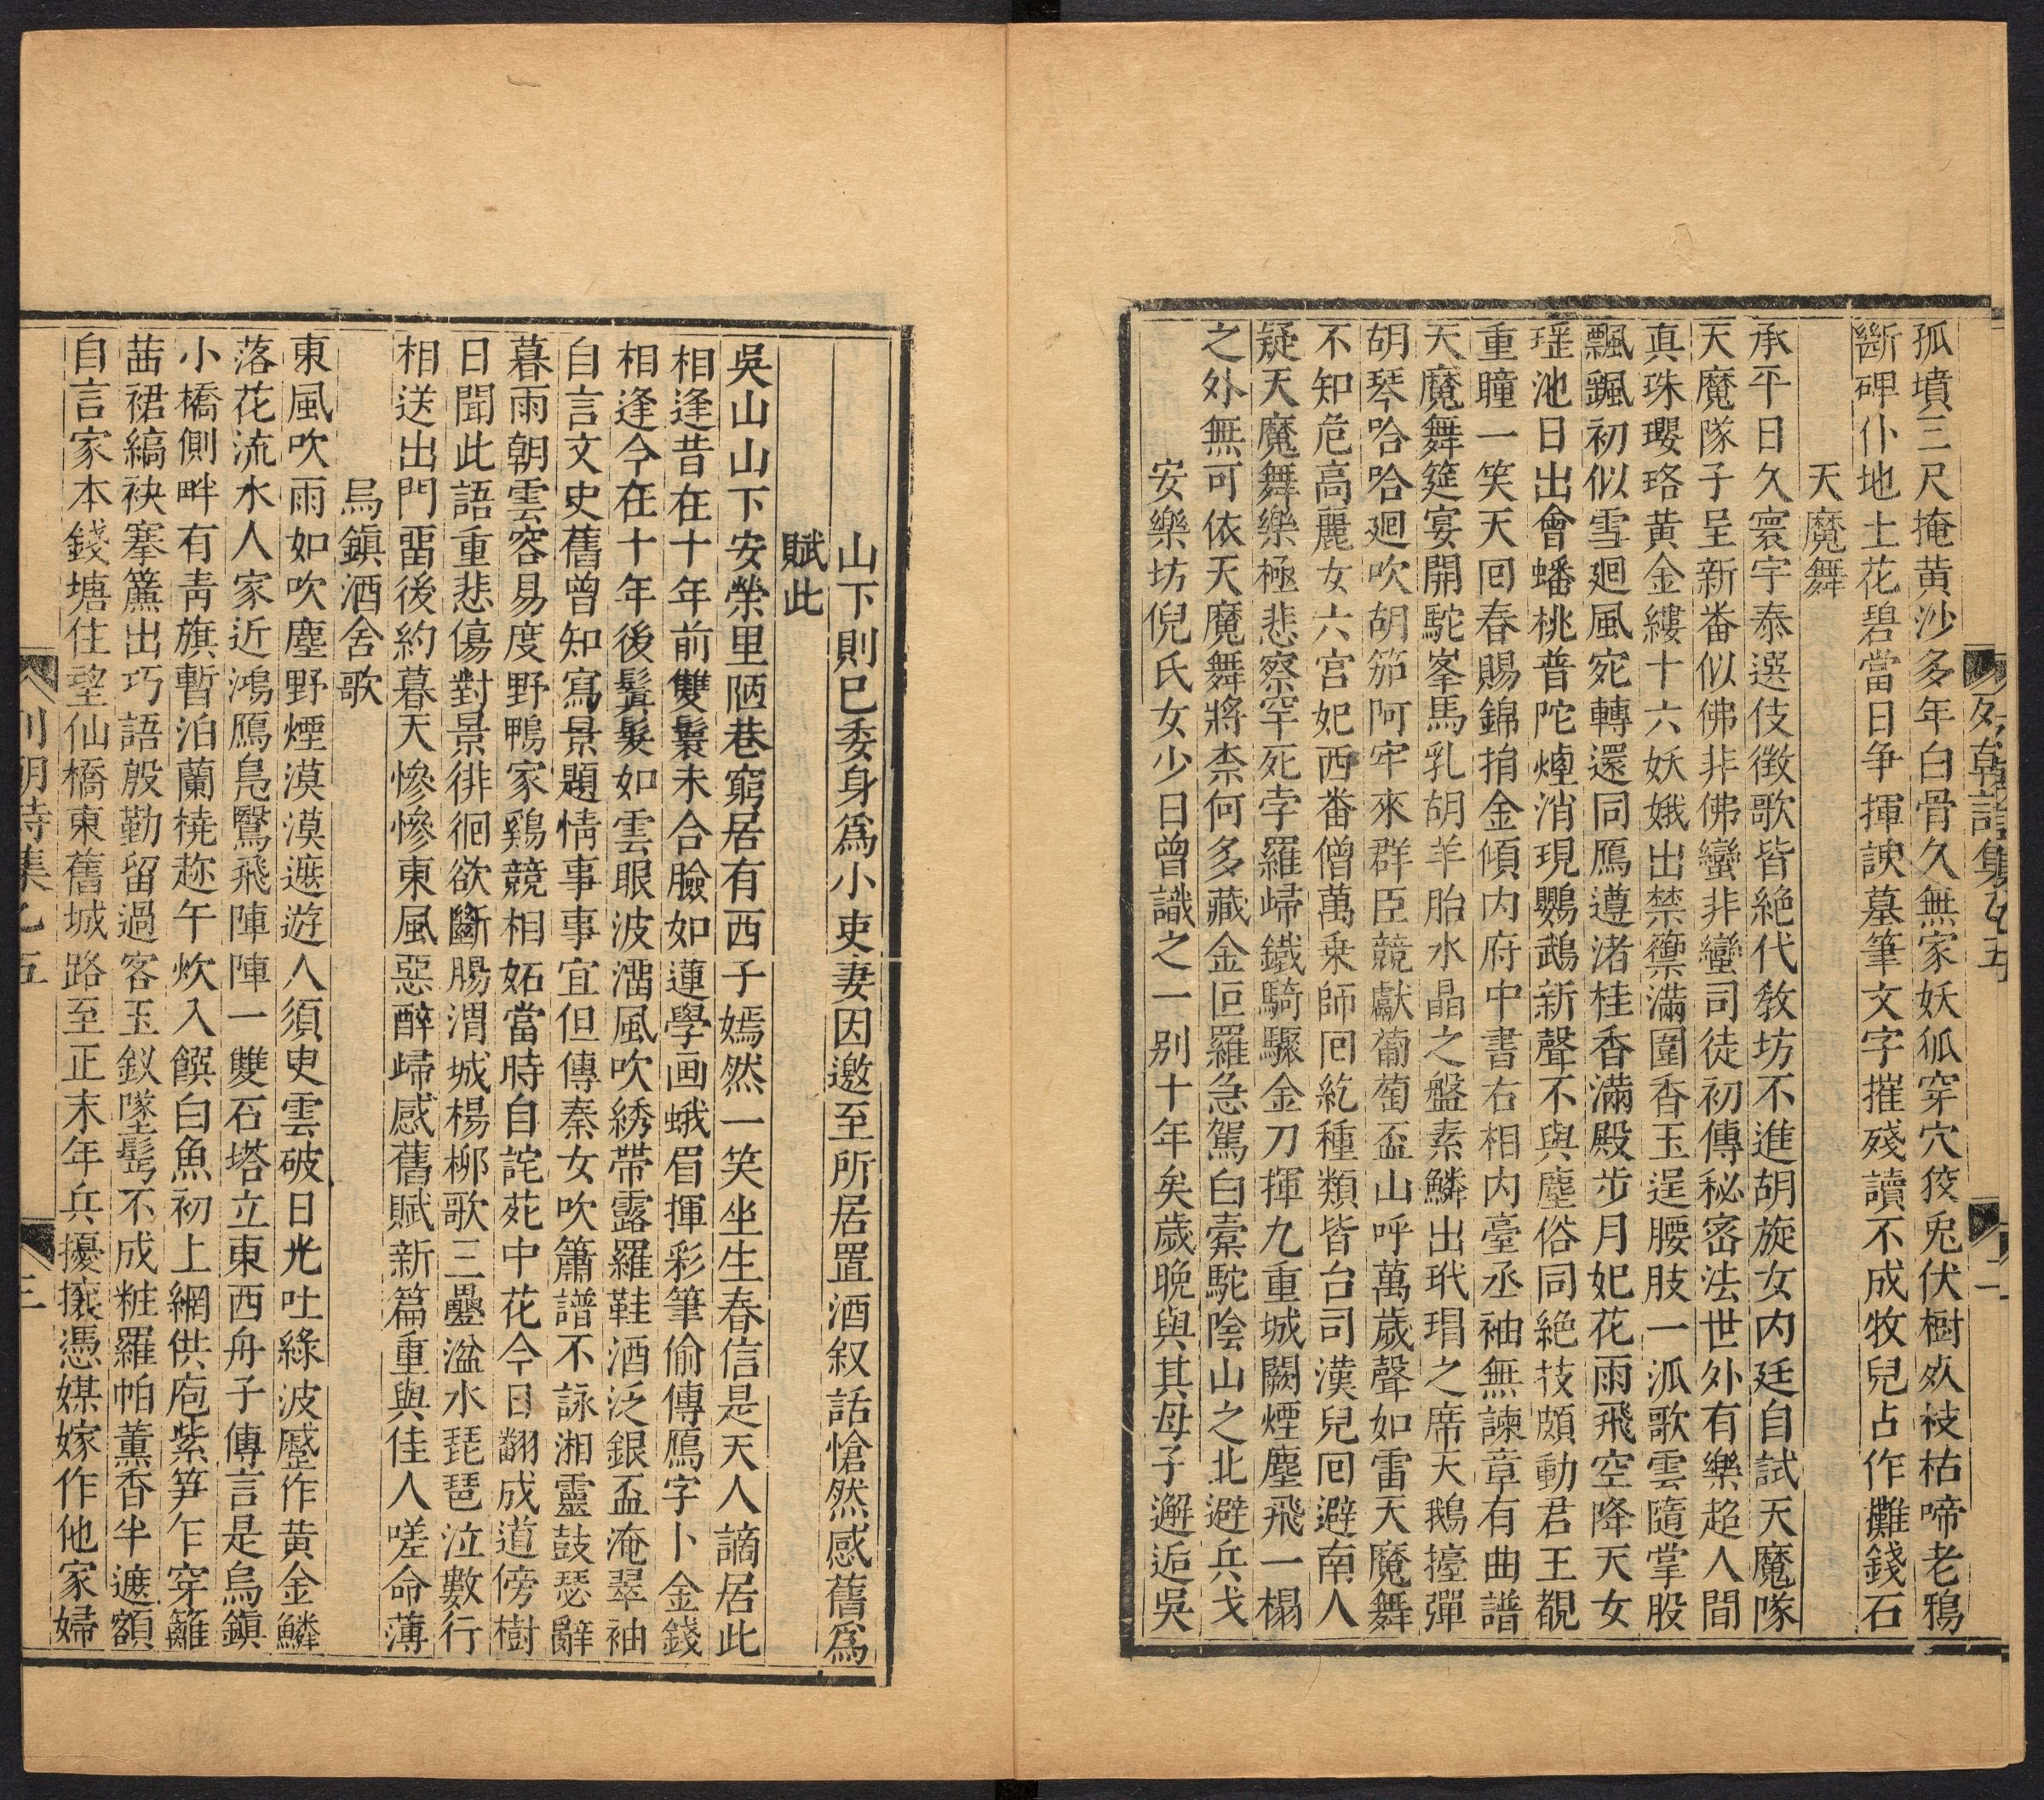 列朝詩集乙五
二
孤墳三尺掩黄沙多年白骨久無家妖狐穿穴狡兎伏樹㱙枝枯啼老鴉
斷碑仆地土花碧當日争揮諛墓筆文字摧殘讀不成牧兒占作攤錢石
天魔舞
承平日久寰宇泰選伎徵歌皆絶代敎坊不進胡旋女内廷自試天魔隊
天魔隊子呈新番似佛非佛蠻非蠻司徒初傳秘宻法世外有樂超人間
真珠瓔珞黄金縷十六妖娥出禁籞滿圍香玉逞腰肢一派歌雲隨掌股
飄飖初似雪廻風宛轉還同鴈遵渚桂香滿殿步月妃花雨飛空降天女
瑶池日出會蟠桃普陀煙消現鸚鵡新聲不與塵俗同絶技頗動君王覩
重瞳一笑天回春賜錦捎金傾内府中書右相内臺丞袖無諫章有曲譜
天魔舞筵宴開駝峯馬乳胡羊胎水晶之盤素鱗出玳瑁之席天鵝擡彈
胡琴哈哈廻吹胡笳阿牢來群臣競獻葡萄盃山呼萬歲聲如雷天魔舞
不知危高麗女六宫妃西番僧萬乗師回紇種類皆台司漢兒回避南人
疑天魔舞樂極悲察罕死孛羅歸鐵騎驟金刀揮九重城闕煙塵飛一榻
之外無可依天魔舞將柰何多藏金叵羅急駕白槖駝陰山之北避兵戈
安樂坊倪氏女少日曾識之一别十年矣歲晩與其母子邂逅吳
山下則巳委身爲小吏妻因邀至所居置酒叙話愴然感舊爲
賦此
吳山山下安榮里陋巷窮居有西子嫣然一笑坐生春信是天人謫居此
相逢昔在十年前雙鬟未合臉如蓮學画蛾眉揮彩筆偷傳鴈字卜金錢
相逢今在十年後鬂髮如雲眼波溜風吹綉帶露羅鞋酒泛銀盃淹翠袖
自言文史舊曾知寫景題情事事宜但傳秦女吹簫譜不詠湘靈鼓瑟辭
暮雨朝雲容易度野鴨家鷄競相妬當時自詫苑中花今日翻成道傍樹
日聞此語重悲傷對景徘徊欲斷腸渭城楊柳歌三疊湓水琵琶泣數行
相送出門畱後約暮天慘慘東風惡醉歸感舊賦新篇重與佳人嗟命薄
烏鎭酒舍歌
東風吹雨如吹塵野煙漠漠遮遊人須臾雲破日光吐綠波蹙作黄金鱗
落花流水人家近鴻鴈鳧鷖飛陣陣一雙石塔立東西舟子傳言是烏鎭
小橋側畔有靑旗暫泊蘭橈趂午炊入饌白魚初上網供庖紫笋乍穿籬
茜裙縞袂搴簾出巧語殷勤留過客玉釵墜髩不成粧羅帕薰香半遮額
自言家本錢塘住望仙橋東舊城路至正末年兵擾攘憑媒嫁作他家婦
列朝詩集乙五
三